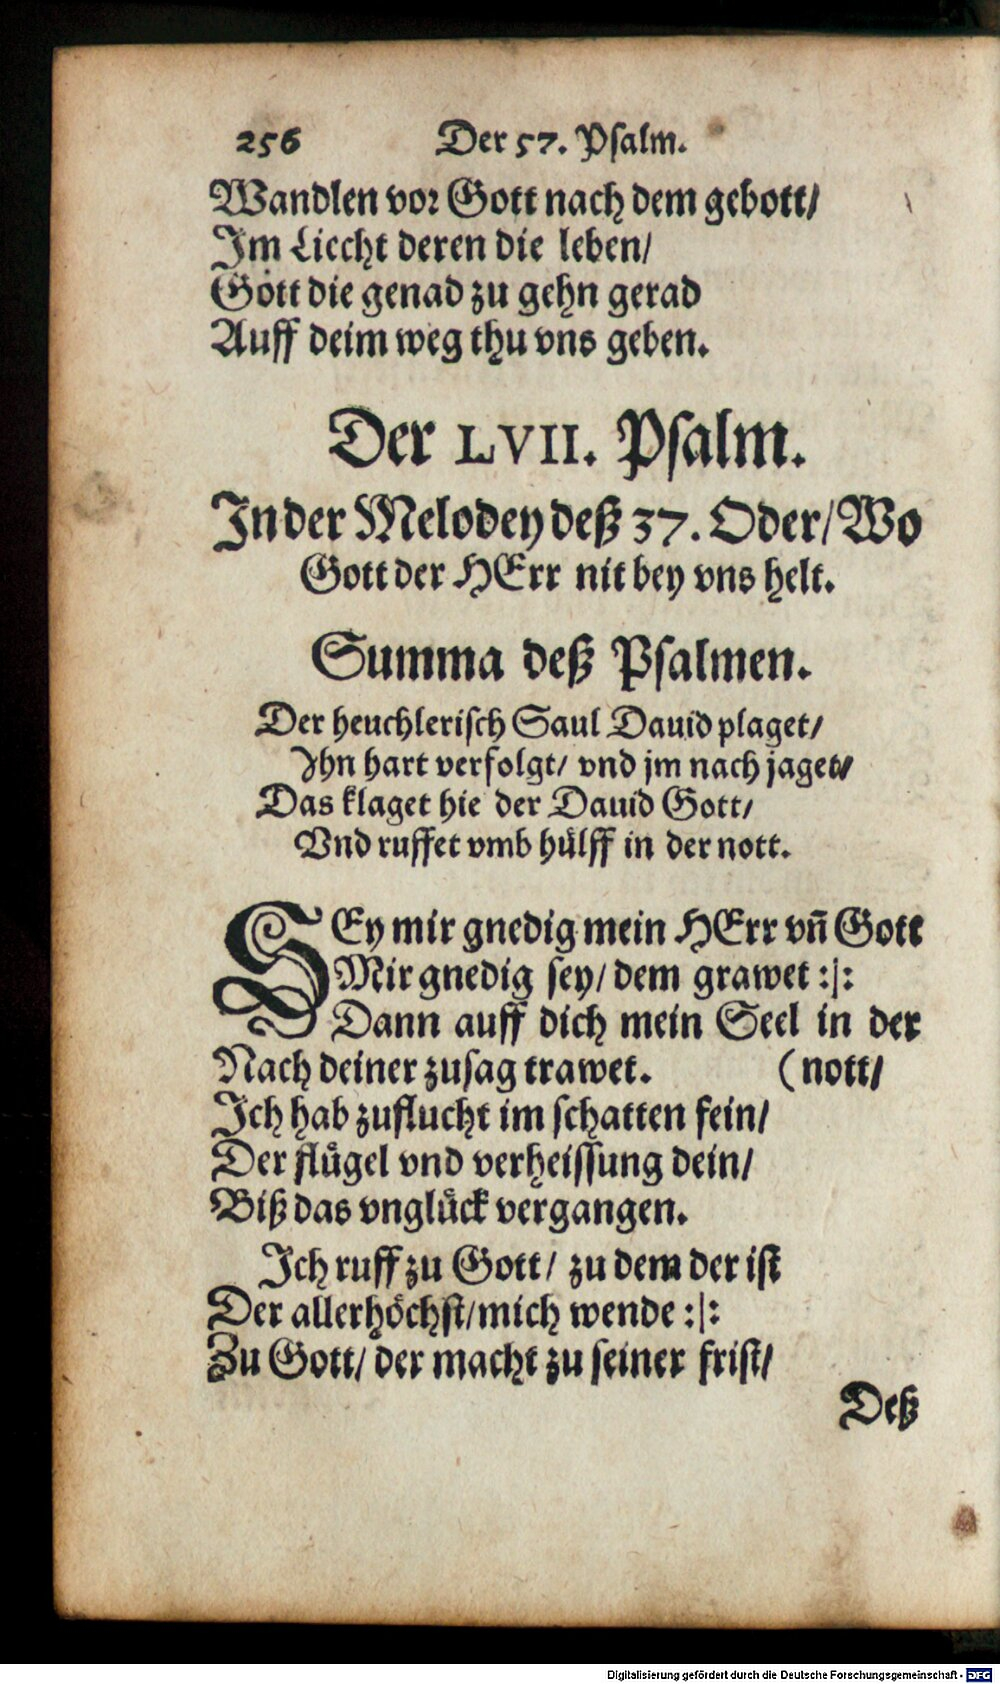 256 Der 57. Psalm.
Wandlen vor Gott nach dem gebott/
Im Liecht deren die leben/
Gott die genad zu gehn gerad
Auff deim weg thu vns geben.
Der LVII. Psalm.
In der Melodey deß 37. Oder/ Wo
Gott der HErr nit bey vns helt.
Summa deß Psalmen.
Der heuchlerisch Saul Dauid plaget/
Ihn hart verfolgt/ vnd jm nach jaget/
Das klaget hie der Dauid Gott/
Vnd ruffet vmb hülff in der nott.
SEy mir gnedig mein HErr vn̄ Gott
Mir gnedig sey/ dem grawet :|:
Dann auff dich mein Seel in der
Nach deiner zusag trawet. (nott/
Ich hab zuflucht im schatten fein/
Der flügel vnd verheissung dein/
Biß das vnglück vergangen.
Ich ruff zu Gott/ zu dem der ist
Der allerhöchst/ mich wende :|:
Zu Gott/ der macht zu seiner frist/
Deß
Digitalisierung gefördert durch die Deutsche Forschungsgemeinschaft - DFG